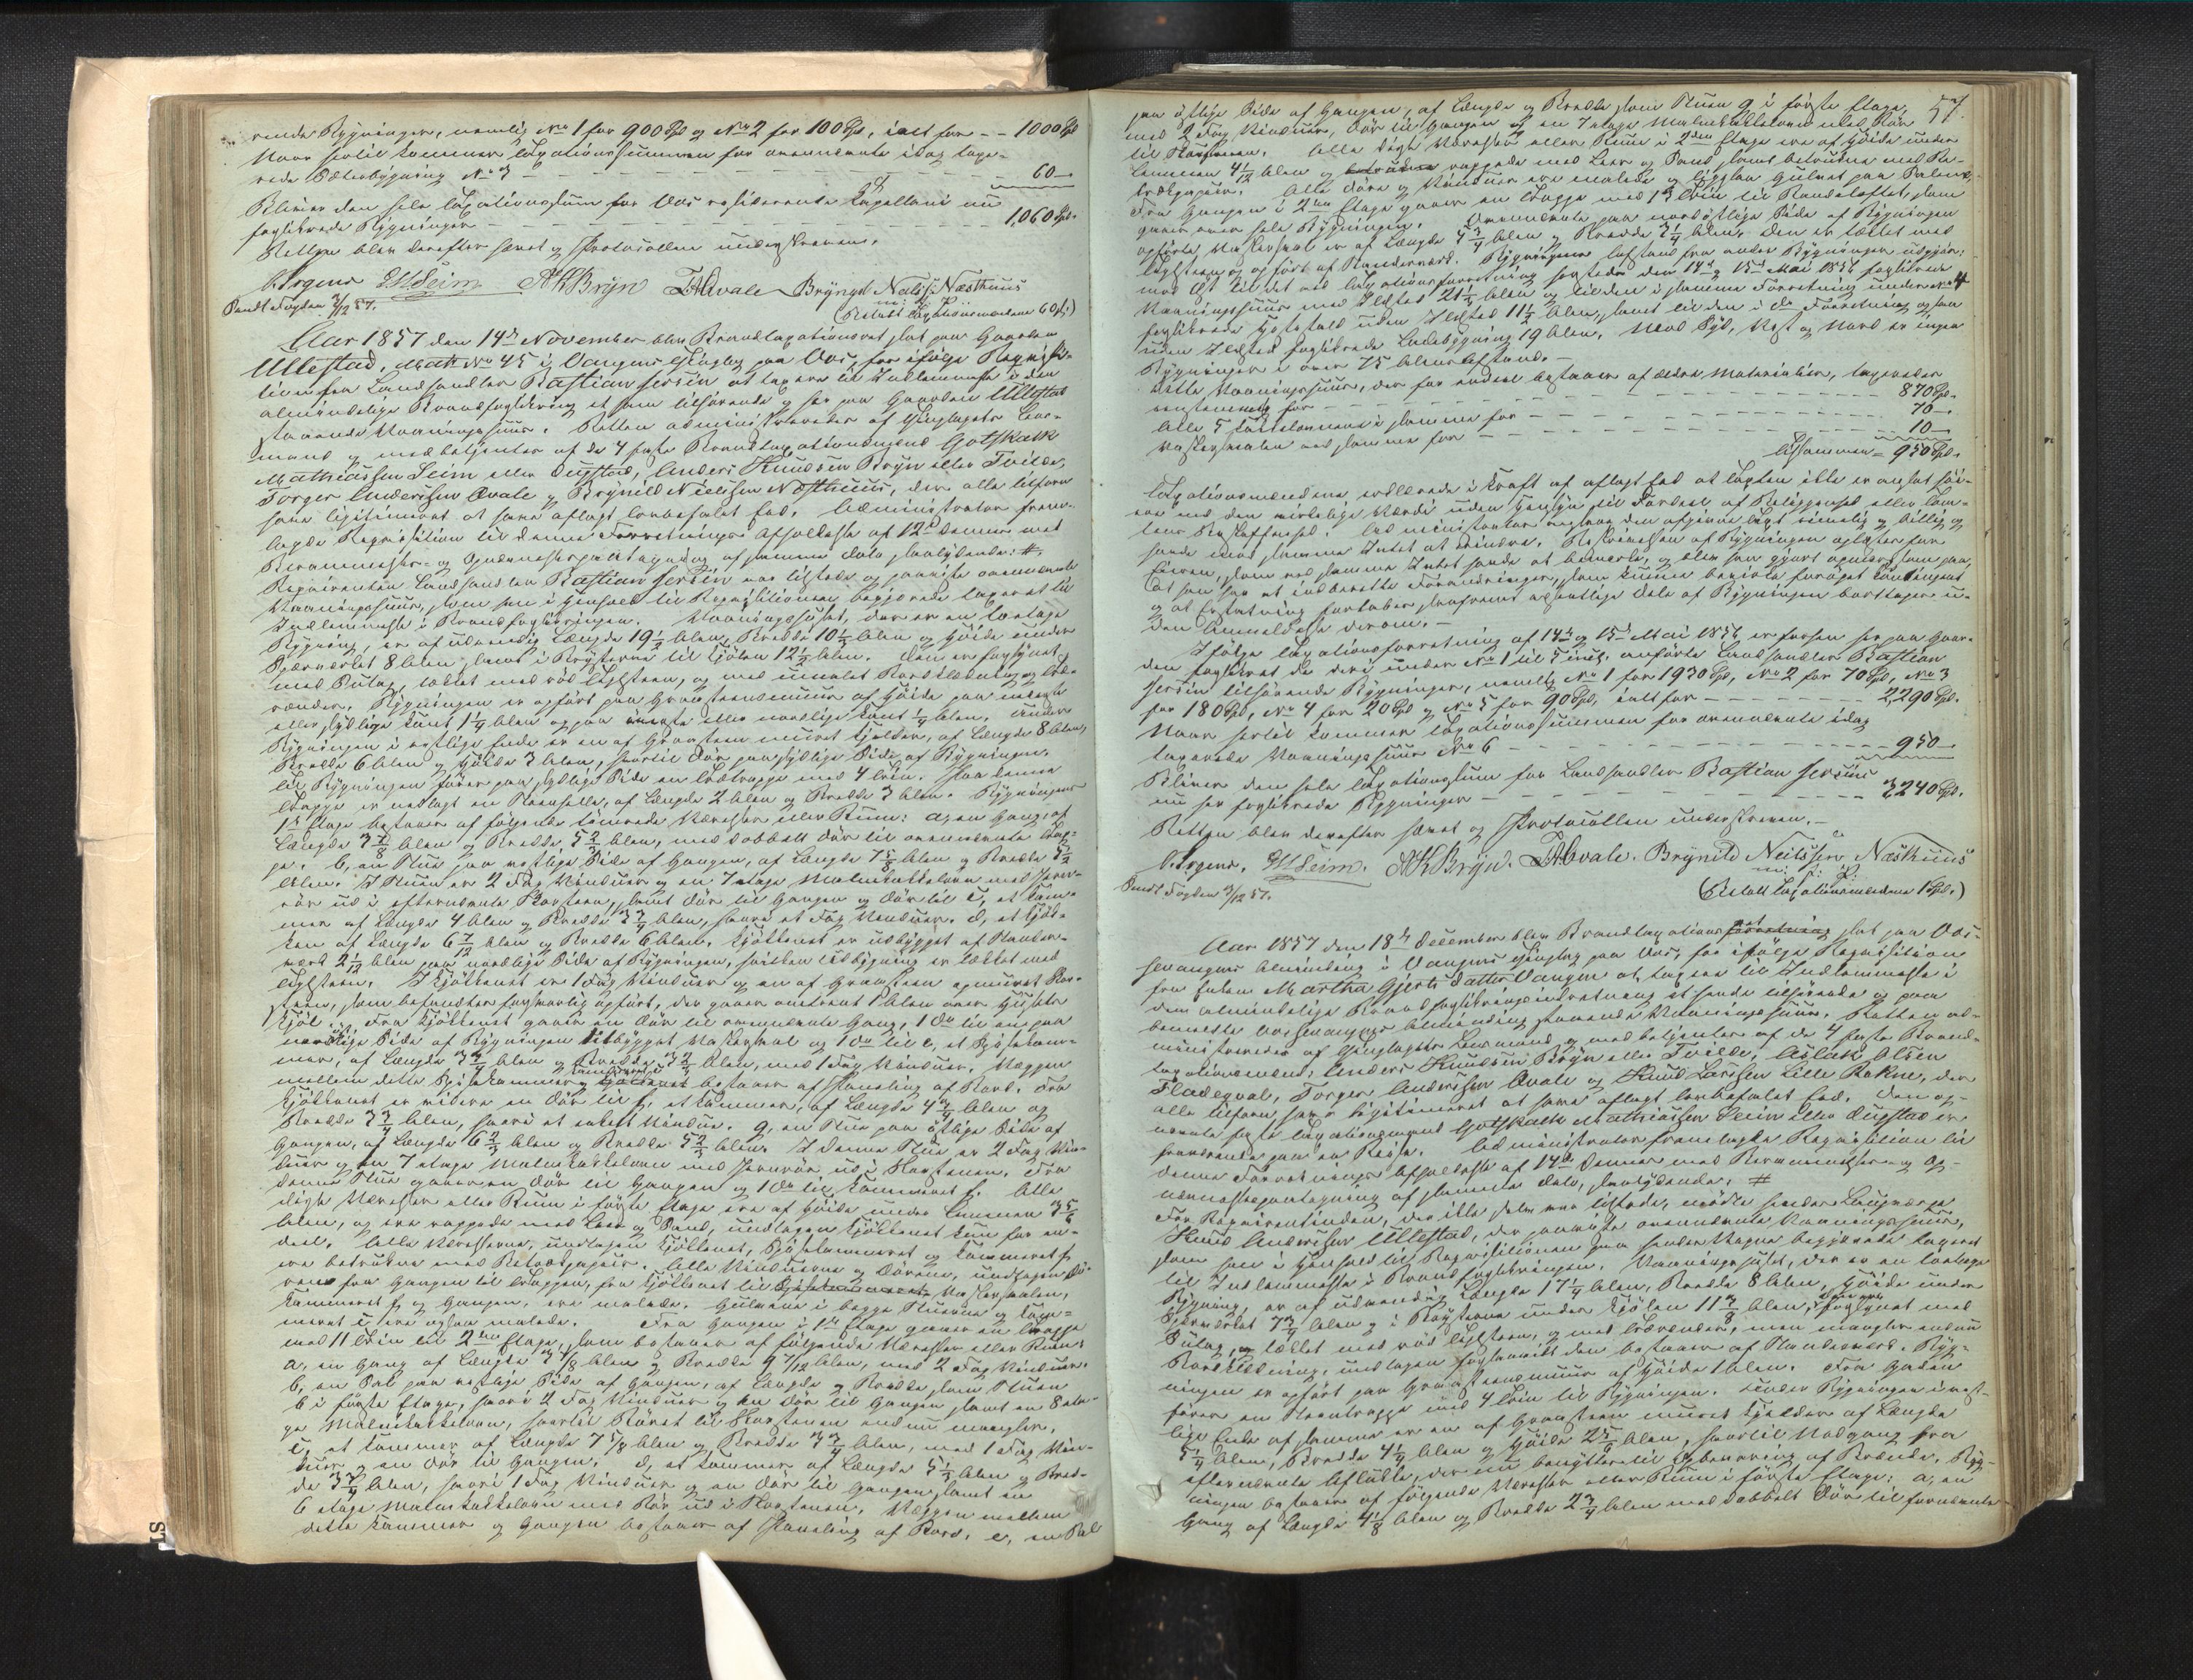 rende Bygninger, nemlig No 1 for 900 Spd og No 2 for 100 Spd, ialt for - - 1000 Spd
Naar hertil kommer Taxationssummen for ovennævnte idag taxe-
rede Bygning No 3 - - - 60 -
Bliver den hele Taxationssum for Vos residerende Capellani nu
forsikrede Bygninger - - - 1,060 Spd.
Retten blev derefter hævet og Protocollen underskreven.
GMSeim AKBryn TAKvale Brynild Nielss: Næsthuus
Sendt Fogden 3/12 57. (Betalt Taxationsmændene
Aar 1857 den 14de November blev Brandtaxationsret sat paa Gaarden
Ullestad, Matr No 45 i Vangens Thinglag paa Vos, for ifølge Reqvisi-
tion fra Landhandler Bastian Jersin at taxere til Indlemmelse i den
almindelige Brandforsikring et ham tilhørende og her paa Gaarden Ullestad
staaende Vaaningshuus. Retten administreredes af Thinglagets Lens-
mand og medbetjentes af de 4 faste Brandtaxationsmænd Gotskalk
Mathiassen Seim eller Dugstad, Anders Knudsen Bryn eller Tvilde,
Torger Anderssen Qvale og Brynild Nielssen Næsthuus, der alle tilforn
have legitimeret at have aflagt lovbefalet Eed. Administrator frem-
lagde Reqvisition til denne Forretnings Afholdelse af 12te dennes med
Berammelses- og Opnævnelsespaategning af samme Dato saalydende: #.
Reqvirenten Landhandler Bastian Jersin var tilstede og paaviste ovennævnte
Vaaningshuus, som han i Henhold til Reqvisitionen begjærede taxeret til
Indlemmelse i Brandforsikringen. Vaaningshuset, der er en toetages
Bygning, er af udvendig Længde 19 1/2 Alen, Bredde 10 1/2 Alen og Høide under
Tværværket 8 Alen samt i Røsterne til Kjølen 12 1/2 Alen. Den er forsynet
med Sutag, tækket med rød Tegelsteen, og med umalet Bordklædning og Tag-
render. Bygningen er opført paa Graasteensmuur af Høide paa
eller sydlige Kant 1 1/4 Alen og paa øverste eller nordlige Kant 1/4 Alen. Under
Bygningen i vestlige Ende er en af Graasteen muret Kjelder, af Længde 8 Alen,
Bredde 6 Alen og Høide 3 Alen, hvortil Dør paa sydlige Side af Bygningen.
Til Bygningen fører paa sydlige Side en Trætrappe med 4 Trin. Paa denne
Trappe er nedlagt en Steenhelle, af Længde 2 Alen og Bredde 3 Alen. Bygningens
1ste Etage bestaaer af følgende tømrede Værelser eller Rum: a, en Gang, af
Længde 3 7/8 Alen og Bredde 5 2/3 Alen, med dobbelt Dør til ovennævnte Trap-
pe. b, en Stue paa vestlige Side af Gangen, af Længde 7 5/8 Alen og Bredde 5 1/2
Alen. I Stuen er 2 Fag Vinduer og en 7 etages Malmkakkelovn med Jern-
rør ud i efternævnte Skorsteen, samt Dør til Gangen og Dør til c, et Kam-
mer af Længde 4 Alen og Bredde 3 3/4 Alen, hvori et Fag Vinduer. d, et Kjøk-
ken af Længde 6 7/12 Alen og Bredde 6 Alen. Kjøkkenet er udbygget af Stander-
værk 2 1/12 Alen paa nordlige Side af Bygningen, hvilken Udbygning er tækket med
Tegelsteen. I Kjøkkenet er 1 Fag Vinduer og en af Graasteen opmuret Skor-
steen, som befandtes forsvarlig opført, der gaaer omtrent 1 Alen over Husets
Kjøl. Fra Kjøkkenet gaaer en Dør til ovennævnte Gang, 1 Do til en paa
nordlige Side af Bygningen tilbygget Vaskehuus og 1 Do til e, et Spiiskam-
mer, af Længde 3 3/4 Alen og Bredde 3 2/3 Alen, med 1 Fag Vinduer. Væggen
mellem dette Spiiskammer og Kjøkkenet bestaaer af Paneling af Bord. Fra
Kjøkkenet er videre en Dør til f, et Kammer, af Længde 4 3/4 Alen og
Bredde 3 3/4 Alen, hvori et enkelt Vindue. g, en Stue paa østlige Side af
Gangen, af Længde 6 2/3 Alen og Bredde 5 2/3 Alen. I denne Stue er 2 Fag Vin-
duer og en 7 etages Malmkakkelovn med Jernrør ud i Skorstenen. Fra
denne Stue gaaer en Dør til Gangen og 1 Do til Kammeret f. Alle
disse Værelser eller Rum i første Etage ere af Høide under Lemmen 3 5/6
Alen, og ere rappede med Leer og Sand, undtagen Kjøkkenet kun for en-
deel. Alle Værelserne, undtagen Kjøkkenet, Spiiskammeret og Kammeret f,
ere betrukne med Betrækpapir. Alle Vinduerne og Dørene, undtagen Dø-
rene fra Gangen til Trappen, fra Kjøkkenet til Vaskehuus,
Kammeret f og Gangen, ere malede. Gulvene i begge Stuerne og Kam-
meret c ere ogsaa malede. Fra Gangen i 1ste Etage gaaer en Trappe
med 11 Trin til 2den Etage, som bestaaer af følgende Værelser eller Rum:
a, en Gang af Længde 7 1/8 Alen og Bredde 9 7/12 Alen, med 2 Fag Vinduer.
b, en Sal paa vestlige Side af Gangen, af Længde og Bredde som Stuen
b i første Etage, hvori 2 Fag Vinduer og en Dør til Gangen samt en 8 eta-
ges Malmkakkelovn, hvortil Røret til Skorstenen endnu mangler.
c, et Kammer af Længde 7 5/8 Alen og Bredde 3 3/4 Alen, med 1 Fag Vin-
duer og en Dør til Gangen. d, et Kammer af Længde 5 1/3 Alen og Bred-
de 3 3/4 Alen, hvori 1 Fag Vinduer og en Dør til Gangen samt en
6 etages Malmkakkelovn med Rør ud i Skorstenen. Væggen mellem
dette Kammer og Gangen bestaaer af Paneling af Bord. e, en Sal
57.
paa østlige Side af Gangen, af Længde og Bredde som Stuen g i første Etage,
med 2 Fag Vinduer, Dør til Gangen og en 7 etages Malmkakkelovn med Rør
til Skorstenen. Alle disse Værelser eller Rum i 2den Etage ere af Høide under
Lemmen 4 1/12 Alen og rappede med Leer og Sand samt betrukne med Be-
trækpapir. Alle Døre og Vinduer ere malede og ligesaa Gulvet paa Salene.
Fra Gangen i 2den Etage gaaer en Trappe med 13 Trin til Rundeloftet, som
gaaer over hele Bygningen. Ovennævnte paa nordøstlige Side af Bygningen
opførte Vaskehuus er af Længde 4 3/4 Alen og Bredde 3 1/4 Alen. Den er tækket med
Tegelsteen og opført af Standerværk. Bygningens Afstand fra andre Bygninger udgjør:
mod Øst til det ved Taxationsforretning hersteds den 14de og 15de Mai 1856 forsikrede
Vaaningshuus med Ildsted 21 1/3 Alen og til den i samme Forretning under No 4
forsikrede Hestestald uden Ildsted 11 1/2 Alen, samt til den i Do Forretning ogsaa
uden Ildsted forsikrede Ladebygning 19 Alen. Mod Syd, Vest og Nord er ingen
Bygninger i over 75 Alens Afstand. -
Dette Vaaningshuus, der for endeel bestaaer af ældre Materialier, taxeredes
for - - - 870 Spd.
Alle 5 Kakkelovnene i samme for - - - 70 -
Vaskehuset ved samme for - - - 10 -
Tilsammen = 950 Spd.
Taxationsmændene erklærede i Kraft af aflagt Eed at Taxten ikke er ansat høi-
ere end den virkelige Værdi uden Hensyn til Fordeel af Beliggenhed eller Tom-
tens Beskaffenhed. Administrator ansaae den afgivne Taxt rimelig og billig og
havde imod samme Intet at erindre. Beskrivelsen af Bygningen oplæstes for
Eieren, som ved samme Intet havde at bemærke, og blev han gjort opmærksom paa,
at han har at indberette Forandringer, som kunne bevirke forøget Contingent
og at Erstatning fortabes saafremt væsentlige Dele af Bygningen borttages u-
den Anmeldelse derom. -
Ifølge Taxationsforretning af 14de og 15de Mai 1856 er forhen her paa Gaar-
den forsikret de deri under No 1 til 5 incl. anførte Landhandler Bastian
Jersin tilhørende Bygninger, nemlig No 1 for 1930 Spd, No 2 for 70 Spd, No 3
for 180 Spd, No 4 for 20 Spd og No 5 for 90 Spd, ialt for - - - 2290 Spd.
Naar hertil kommer Taxationssummen for ovennævnte idag
taxerede Vaaningshuus No 6 - - - 950 -
Bliver den hele Taxationssum for Landhandler Bastian Jersins
nu her forsikrede Bygninger - - - 3,240 Spd.
Retten blev derefter hævet og Protocollen underskreven. -
GMSeim. AKBryn. TAKvale. Brynild Neilssen Næsthuus
Sendt Fogden 3/12 57. (Betalt Taxationsmændene 1 Spd.)
Aar 1857 den 18de December blev Brandtaxationsret sat paa Vos-
sevangens Alminding i Vangens Thinglag paa Vos, for ifølge Reqvisition
fra Enken Martha Gjerts Datter Vangen at taxere til Indlemmelse i
den almindelige Brandforsikringsindretning et hende tilhørende og paa
bemeldte Vossevangens Alminding staaende Vaaningshuus. Retten ad-
ministreredes af Thinglagets Lensmand og medbetjentes af de 4 faste Brand-
taxationsmænd: Anders Knudsen Bryn eller Tvilde, Aslak Olsen
Fladeqval, Torger Anderssen Qvale og Knud Larssen Lille Rokne, der
alle tilforn have legitimeret at have aflagt lovbefalet Eed. Den op-
nævnte faste Taxationsmand Gotskalk Mathiassen Seim eller Dugstad er
fraværende paa en Reise. Administrator fremlagde Reqvisition til
denne Forretnings Afholdelse af 14de dennes med Berammelses- og Op-
nævnelsespaategning af samme Dato, saalydende: #
For Reqvirentinden, der ikke selv var tilstede, mødte hendes Laugværge
Knud Anderssen Ullestad, der paaviste ovennævnte Vaaningshuus,
som han i Henhold til Reqvisitionen paa hendes Vegne begjærede taxeret
til Indlemmelse i Brandforsikringen. Vaaningshuset, der er en toetages
Bygning, er af udvendig Længde 17 1/4 Alen, Bredde 8 Alen, Høide under
Tværværket 7 3/4 Alen og i Røsterne under Kjølen 11 3/8 Alen, forsynet med
Sutag, og tækket med rød Tegelsteen, og med Tagrender, men mangler endnu
Bordklædning, undtagen den bestaaer af Standerværk. Byg-
ningen er opført paa Graasteensmuur af Høide 1 Alen. Fra Gaden
fører en Steentrappe med 4 Trin til Bygningen. Under Bygningen i vest-
lige Ende af samme er en af Graasteen muret Kjelder af Længde
5 1/4 Alen, Bredde 4 1/4 Alen og Høide 2 5/6 Alen, hvortil Nedgang fra
efternævnte Aflukke, der nu benyttes til Opbevaring af Brænde. Byg-
ningen bestaaer af følgende Værelser eller Rum i første Etage: a, en
Gang af Længde 4 1/8 Alen og Bredde 2 3/4 Alen med dobbelt Dør til fornævnte